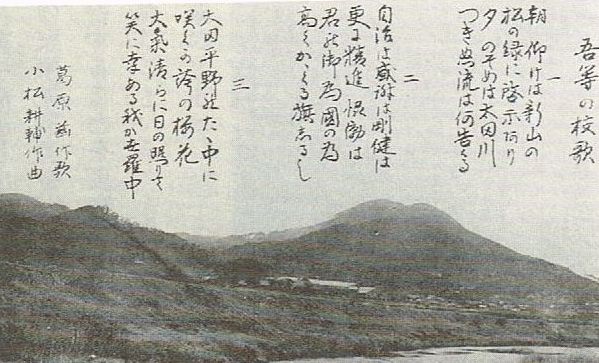 吾等の校歌
一
朝仰けは新山の
松の緑に啓示あり
夕のそめは太田川
つきぬ流は何告くる
二
自治は感謝は剛健は
更に精進恨働は
君の御為国の為
高くかゝくる旗しるし
三
太田平野のたゝ中に
咲くや誇の桜花
大氣清らに日の照りて
笑に幸ある我か世羅中
葛原𦱳作歌
小松耕輔作曲